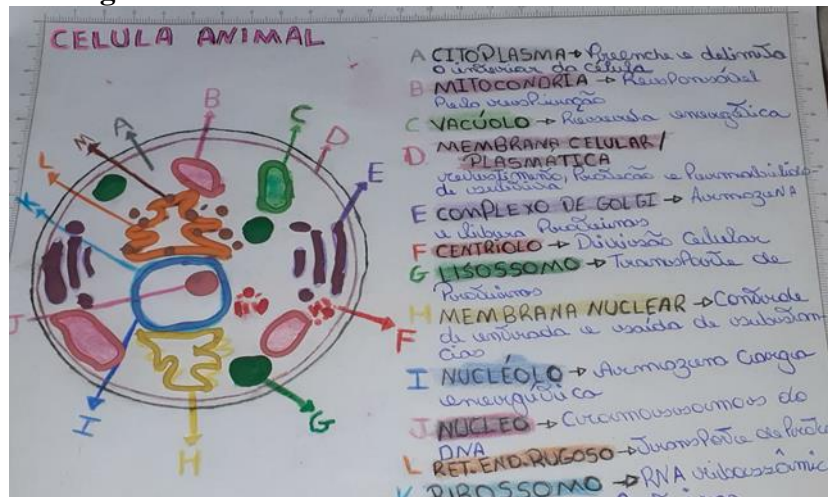 CELULA ANIMAL
A CITOPLASMA → Preenche e delimita
o interior da célula
B MITOCONDRIA → Responsável
Pela respiração
C VACÚOLO → Reserva energética
D MEMBRANA CELULAR/
PLASMÁTICA
revestimento, Proteção e Permeabilida-
de seletiva
E COMPLEXO DE GOLGI → Armazena
e libera Proteínas
F CENTRÍOLO → Divisão Celular
G LISOSSOMO → Transporte de
Proteínas
H MEMBRANA NUCLEAR → Controle
de entrada e saída de substân-
cias
I NUCLÉOLO → Armazena Carga
energética
J NUCLEO → Cromossomos do
DNA
L RET. END. RUGOSO → Transporte de
K RIBOSSOMO → RNA
A
B
C
D
E
F
G
H
I
J
K
L
M